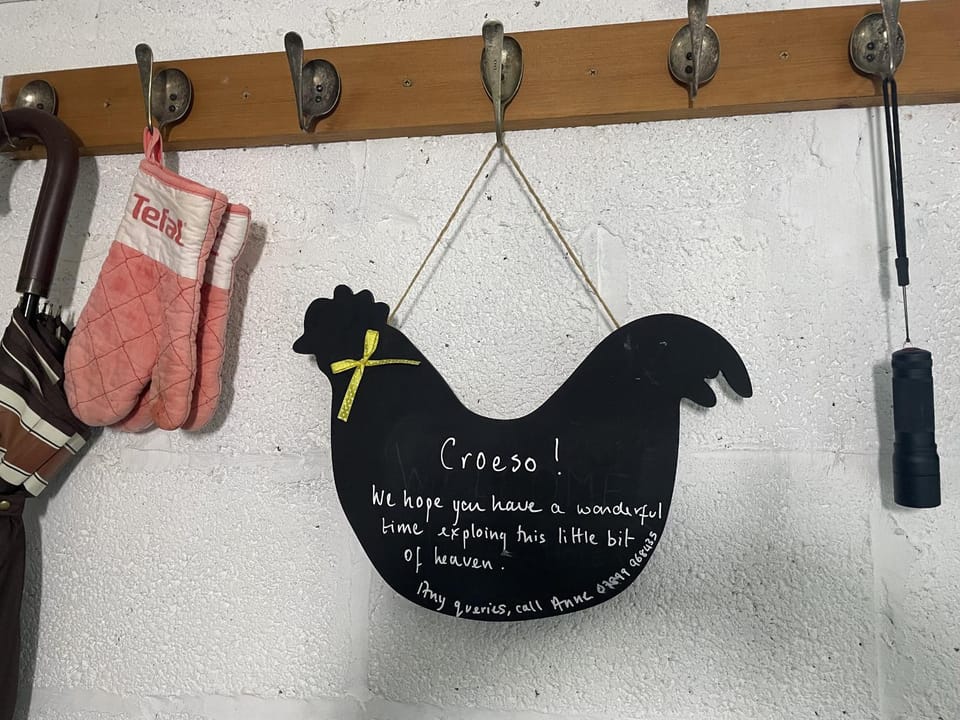 Tefal
Croeso!
We hope you have a wonderful
time exploing this little bit
of heaven.
Any queries, call Anne 07899 968435